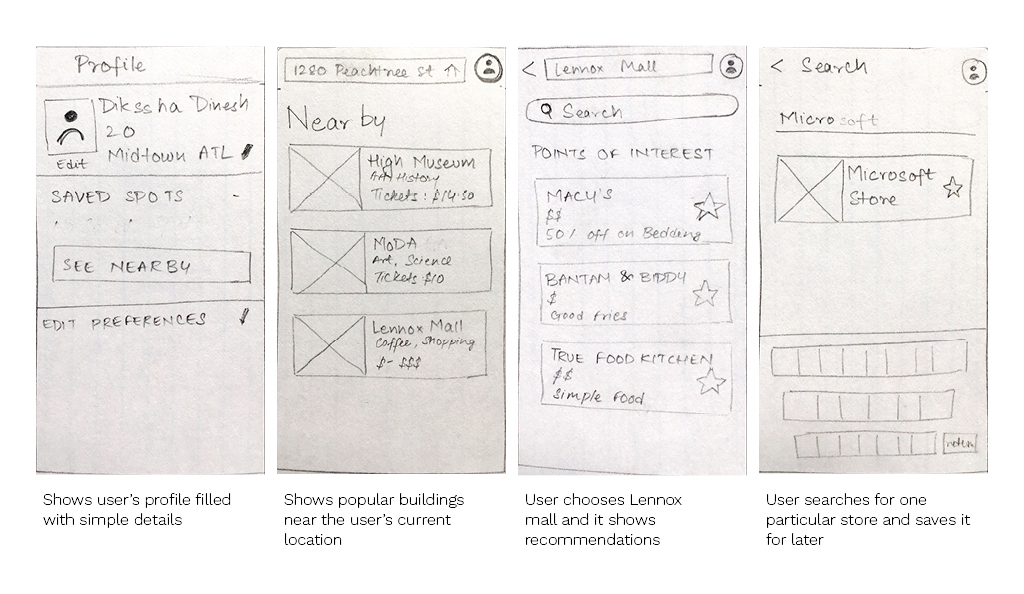 Profile
Dikssha Dinesh
20
Midtown ATL
Edit
SAVED SPOTS -
SEE NEARBY
EDIT PREFERENCES
Shows user's profile filled
with simple details
1280 Peachtree St
Near by
High Museum
Art, History
Tickets : $14.50
MODA
Art, Science
Tickets: $10
Lennox Mall
Coffee, Shopping
$ - $$$
Shows popular buildings
near the user's current
location
< Lennox Mall
Search
POINTS OF INTEREST
MACY'S
$$
50% off on Bedding
BANTAM & BIDDY
$
Good fries
TRUE FOOD KITCHEN
$$
Simple Food
User chooses Lennox
mall and it shows
recommendations
< Search
Microsoft
Microsoft
Store
User searches for one
particular store and saves it
for later